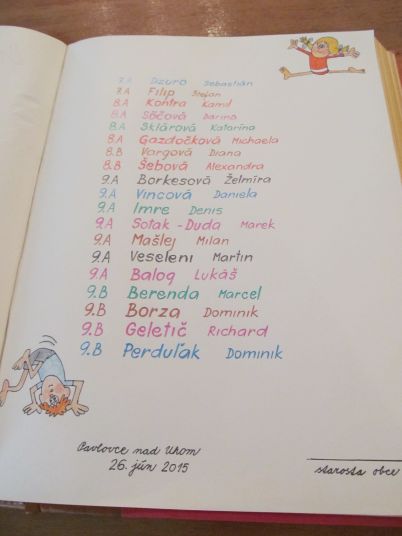 7.A Dzuro Sebastián
7.A Filip Štefan
8.A Kontra Kamil
8.A Sóčová Darina
8.A Sklárová Katarína
8.A Gazdočková Michaela
8.B Vargová Diana
8.B Šebová Alexandra
9.A Borkesová Želmíra
9.A Vincová Daniela
9.A Imre Denis
9.A Soták-Duda Marek
9.A Mašlej Milan
9.A Veseleni Martin
9.A Balog Lukáš
9.B Berenda Marcel
9.B Borza Dominik
9.B Geletič Richard
9.B Perduľak Dominik
Pavlovce nad Uhom
26. jún 2015
starosta obce